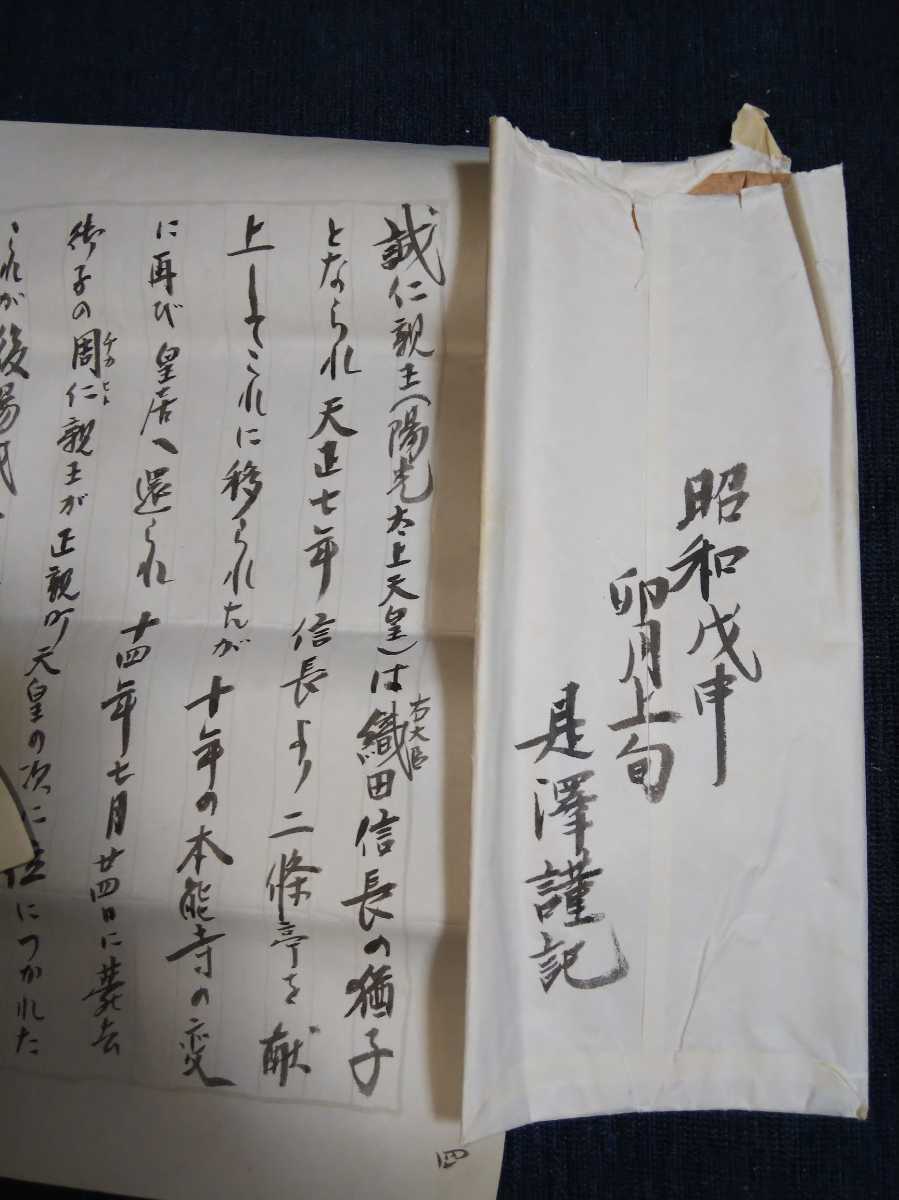 昭和戊申
卯月上旬
是澤謹記
誠仁親王(陽光太上天皇)は織田信長の猶子
右大臣
となられ天正七年信長より二條亭を献
上してこれに移られたが十年の本能寺の変
に再び皇居へ還られ十四年七月廿四日に薨去
御子の周仁親王が正親町天皇の次に位につかれた
チカヒト
これが後陽成
四